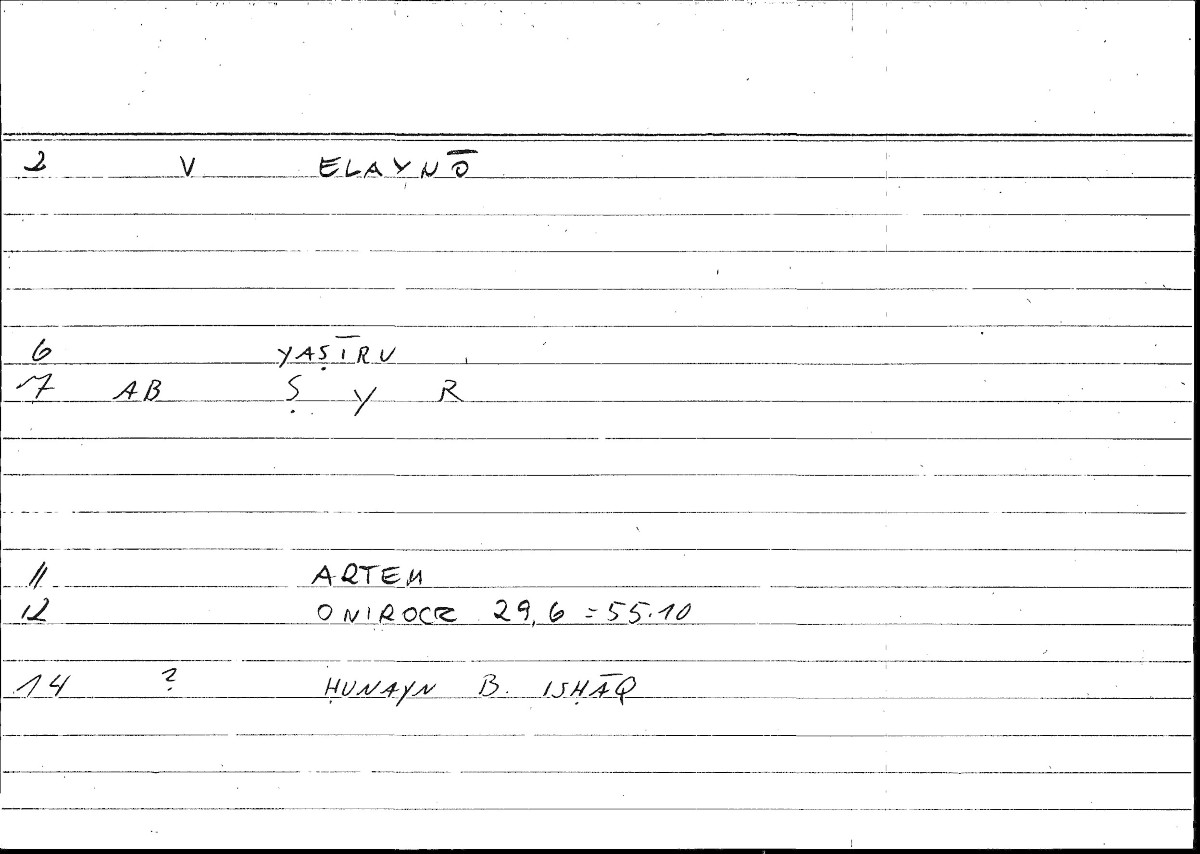 2 V ELAYNŌ
6 YAṢĪRU
7 AB Ṣ Y R
11 ARTEM
12 ONIROCR 29,6 = 55.10
14 ? ḤUNAYN B. ISḤĀQ